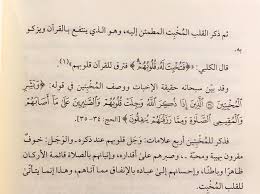 ثم ذكر القلب المُخْبِت المطمئن إليه، وهو الذي ينتفع بالقرآن ويزكو
به.
قال الكلبي: ﴿فَتُخْبِتَ لَهُ قُلُوبُهُمْ﴾ فترق للقرآن قلوبهم(١).
وقد بيّن سبحانه حقيقة الإخبات ووصف المخبتين في قوله: ﴿وَبَشِّرِ
الْمُخْبِتِينَ ۞ الَّذِينَ إِذَا ذُكِرَ اللَّهُ وَجِلَتْ قُلُوبُهُمْ وَالصَّابِرِينَ عَلَىٰ مَا أَصَابَهُمْ
وَالْمُقِيمِي الصَّلَاةِ وَمِمَّا رَزَقْنَاهُمْ يُنْفِقُونَ﴾ [الحج: ٣٤-٣٥].
فذكر للمخبتين أربع علامات: وجل قلوبهم عند ذكره ـ والوَجَل: خوفٌ
مقرون بهيبة ومحبة ـ، وصبرهم على أقداره، وإتيانهم بالصلاة قائمة الأركان
ظاهرًا وباطنًا، وإحسانهم إلى عباده بالإنفاق مما آتاهم، وهذا إنما يتأتّى